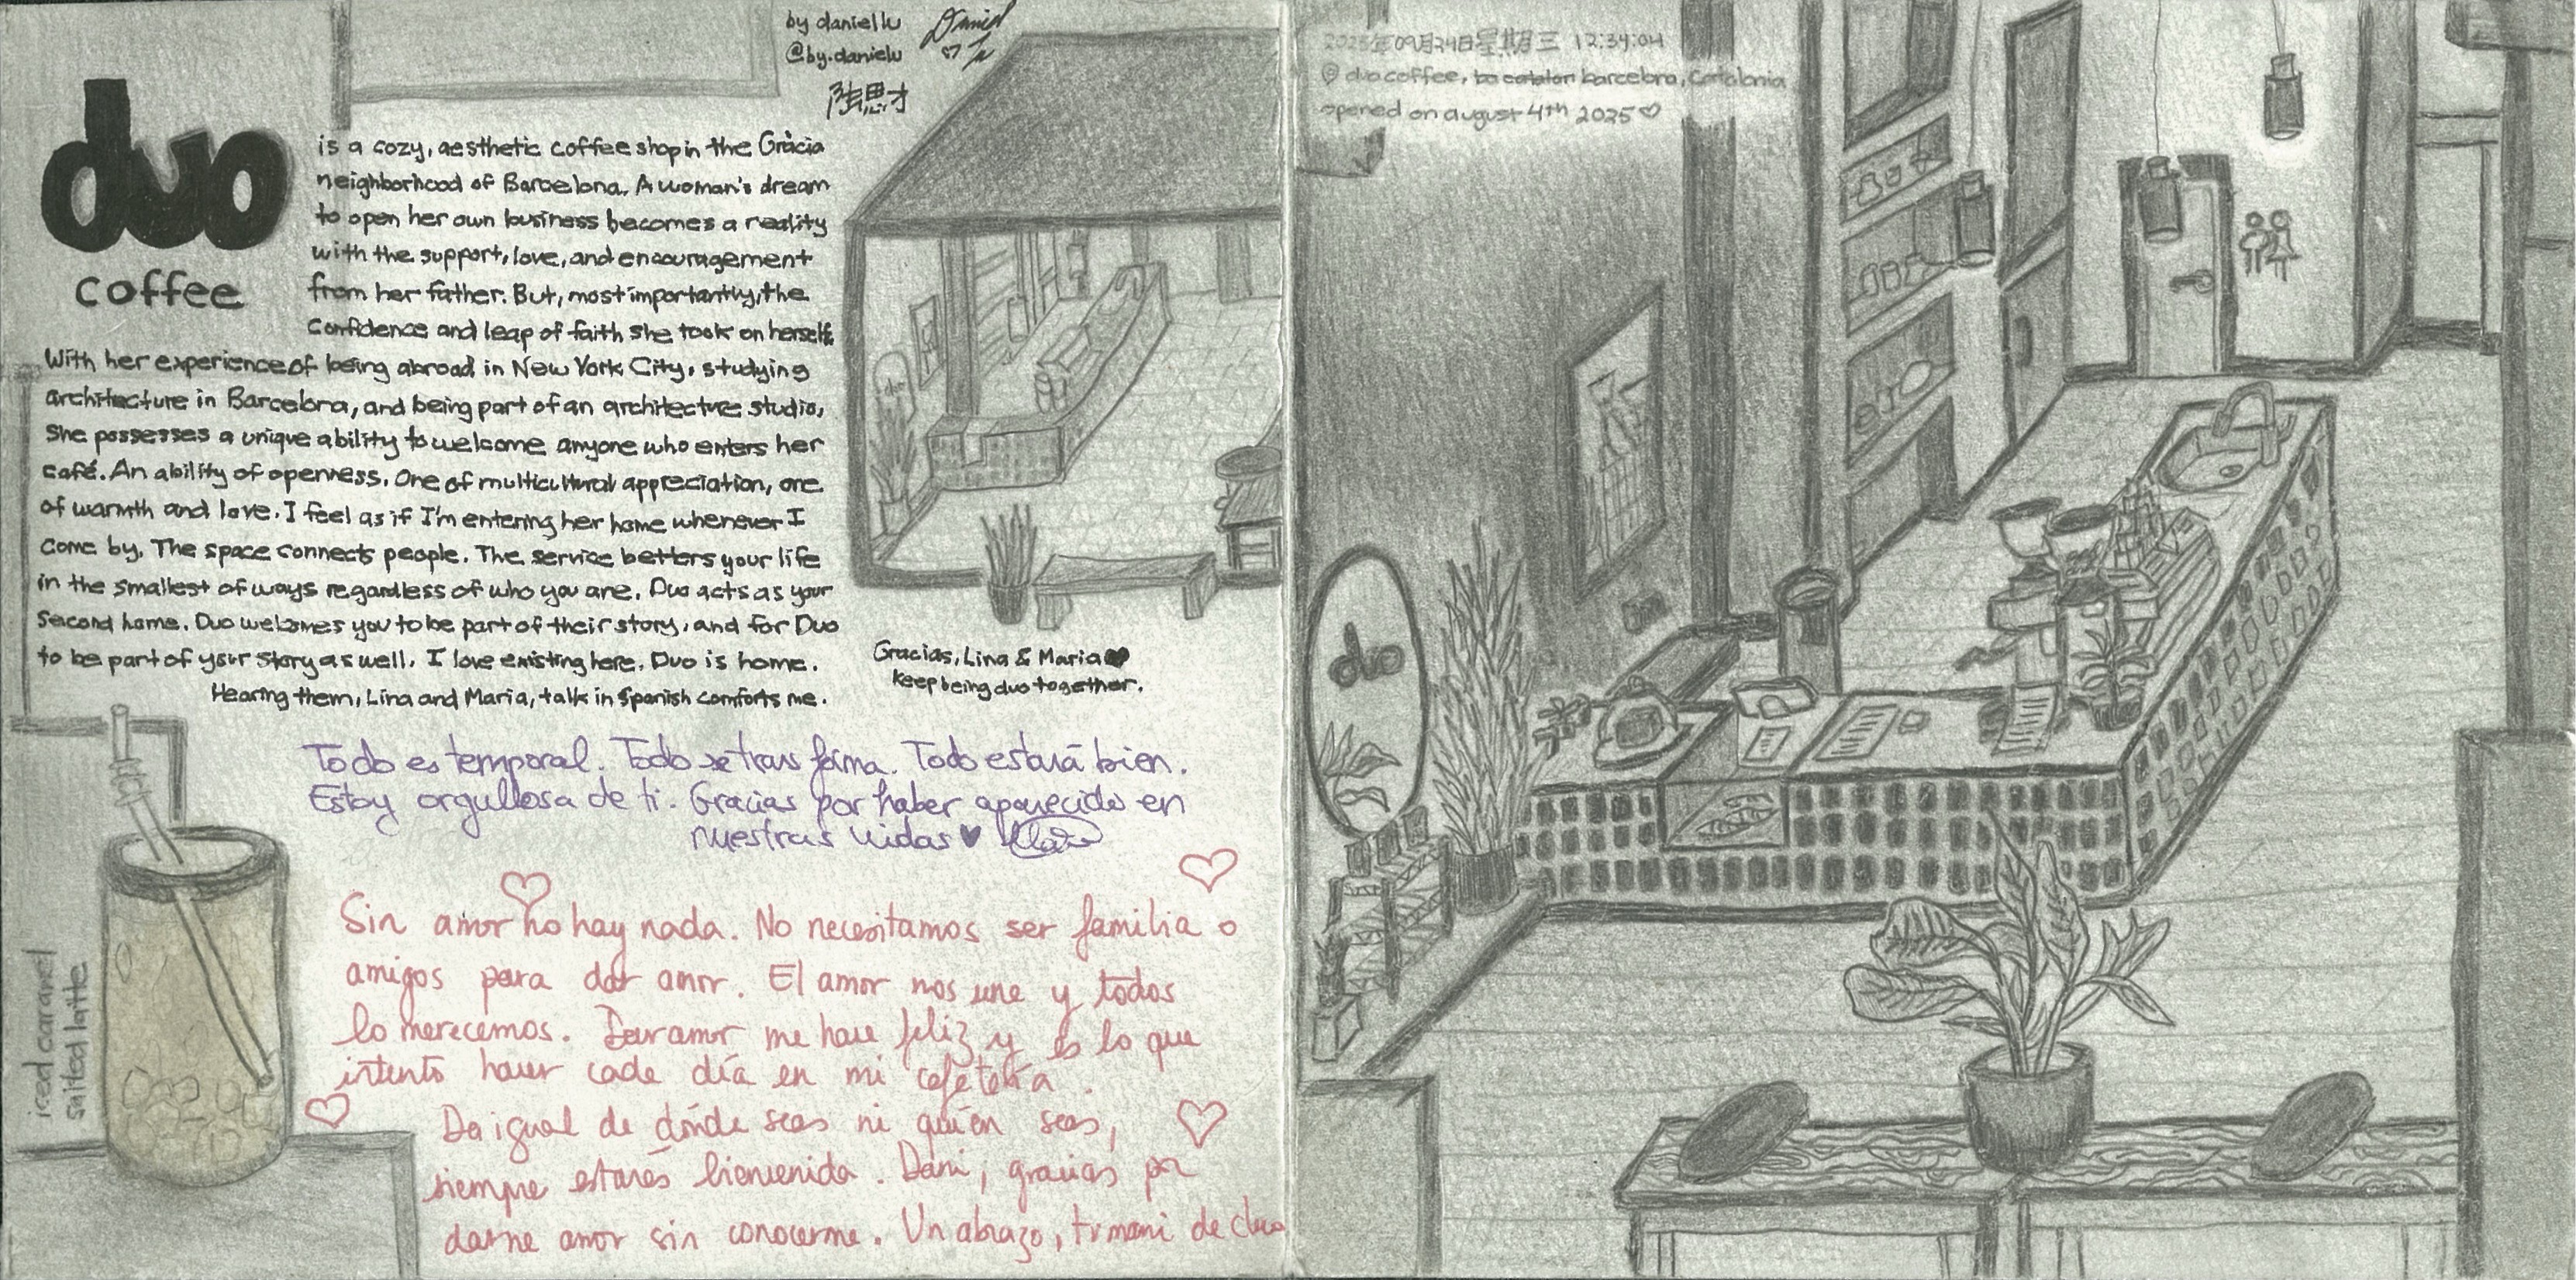 by daniel lu
@by.danielu
Daniel
duo
coffee
is a cozy, aesthetic coffee shop in the Gràcia
neighborhood of Barcelona. A woman's dream
to open her own business becomes a reality
with the support, love, and encouragement
from her father. But, most importantly, the
confidence and leap of faith she took on herself.
With her experience of being abroad in New York City, studying
architecture in Barcelona, and being part of an architecture studio,
She possesses a unique ability to welcome anyone who enters her
café. An ability of openness. One of multicultural appreciation, one
of warmth and love. I feel as if I'm entering her home whenever I
come by. The space connects people. The service betters your life
in the smallest of ways regardless of who you are. Duo acts as your
second home. Duo welcomes you to be part of their story, and for Duo
to be part of your story as well. I love existing here. Duo is home.
Hearing them, Lina and Maria, talk in Spanish comforts me.
Gracias, Lina & Maria ♥
keep being duo together.
Todo es temporal. Todo se transforma. Todo estará bien.
Estoy orgullosa de ti. Gracias por haber aparecido en
nuestras vidas ♥
Sin amor no hay nada. No necesitamos ser familia o
amigos para dar amor. El amor nos une y todos
lo merecemos. Dar amor me hace feliz y es lo que
intento hacer cada día en mi cafetería.
Da igual de dónde seas ni quién seas,
siempre estarás bienvenida. Dani, gracias por
darme amor sin conocerme. Un abrazo, tu mami de duo
iced caramel
salted latte
duo
2025年09月24日星期三 12:34:04
duo coffee, barcelona, Catalonia
opened on august 4th 2025♡
duo